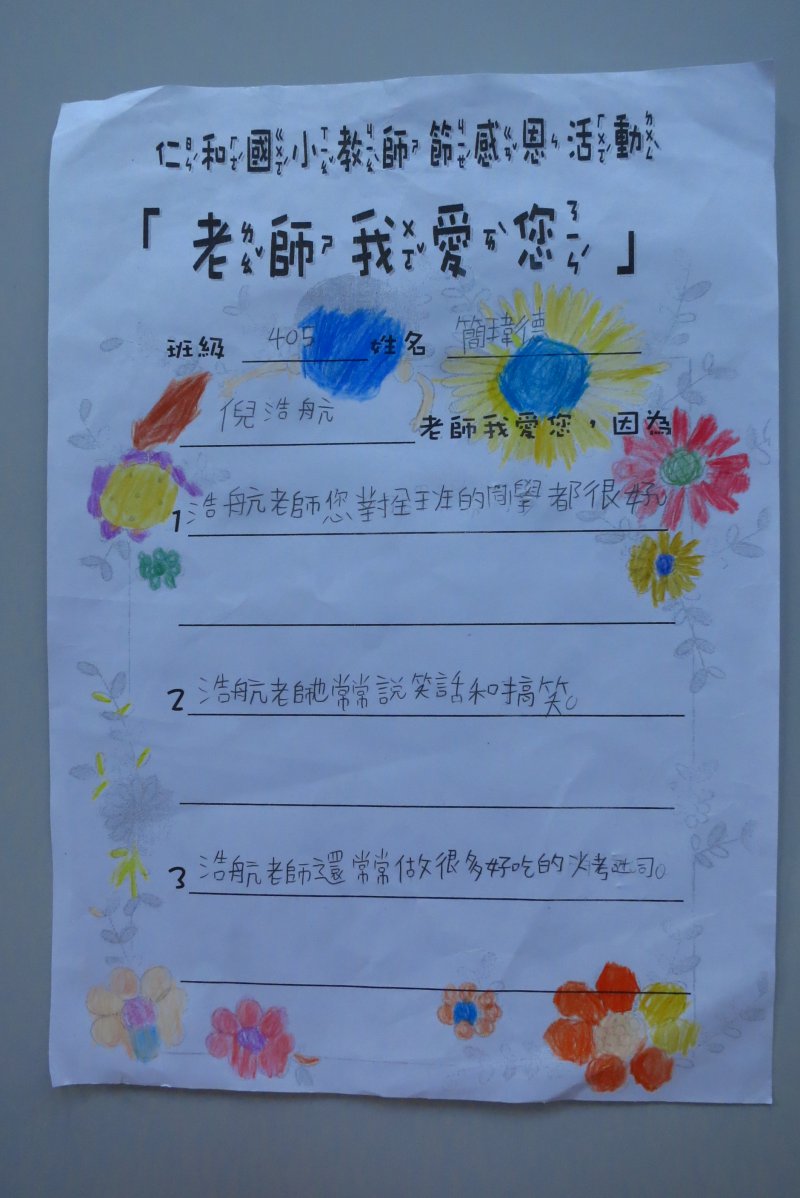 仁和國小教師節感恩活動
「老師我愛您」
班級 405 姓名 簡瑋德
倪浩航 老師我愛您，因為
1 浩航老師您對全班的同學都很好。
2 浩航老師也常常說笑話和搞笑。
3 浩航老師還常常做很多好吃的烤吐司。